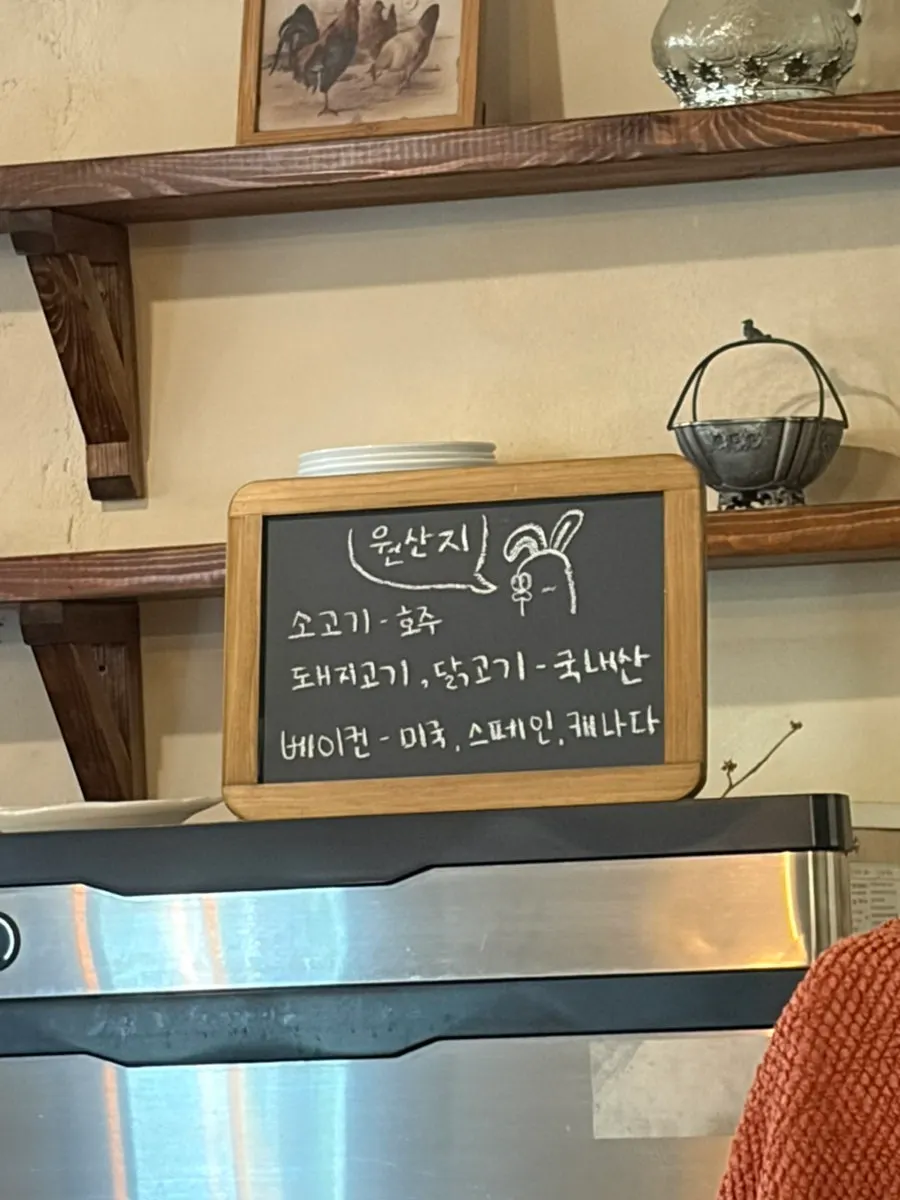 원산지
소고기 - 호주
돼지고기, 닭고기 - 국내산
베이컨 - 미국, 스페인, 캐나다